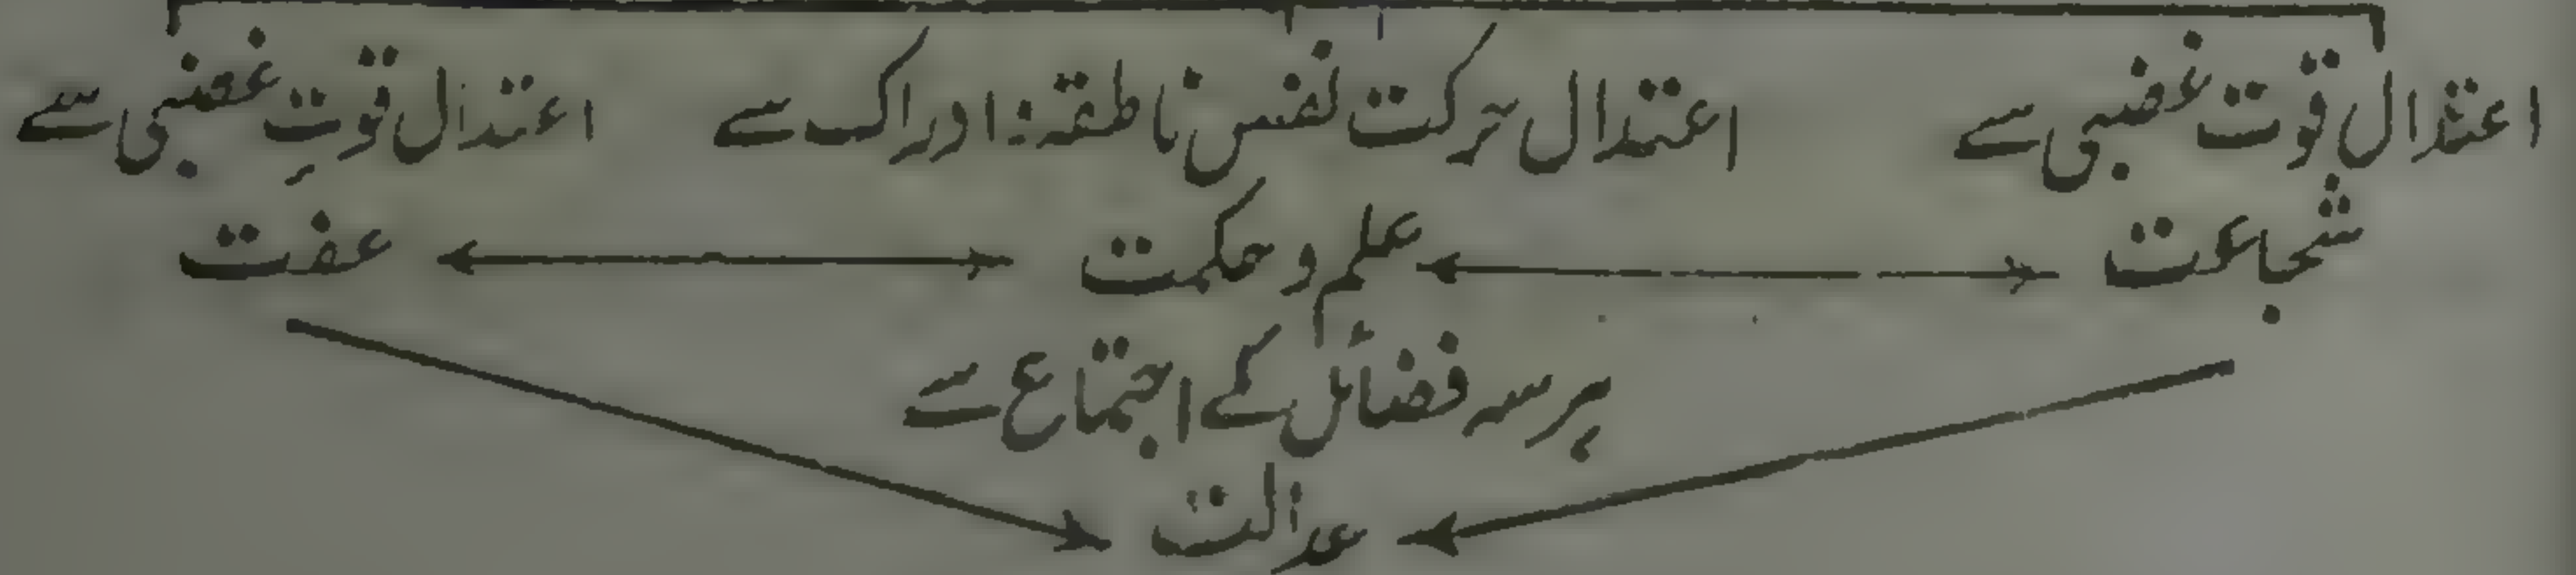 اعتدال قوت غضبی سے    اعتدال حرکت نفس ناطقہ: ادراک سے    اعتدال قوتِ غضبی سے
شجاعت    علم و حکمت    عفت
ہر سہ فضائل کے اجتماع سے
عدالت